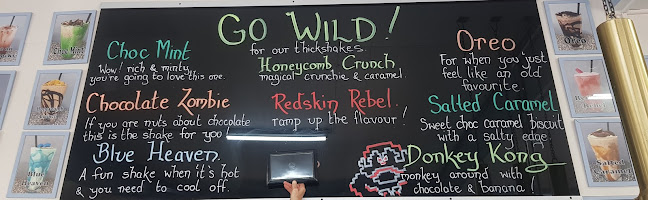 GO WILD!
for our thickshakes.
Choc Mint
Wow! rich & minty
you're going to love this one.
Chocolate Zombie
If you are nuts about chocolate
this is the shake for you
Blue Heaven.
A fun shake when it's hot
& you need to cool off.
Honeycomb Crunch
magical crunchie & caramel
Redskin Rebel.
ramp up the flavour!
Oreo
For when you just
feel like an old
favourite
Salted Caramel
Sweet choc caramel biscuit
with a salty edge.
Donkey Kong
monkey around with
chocolate & banana!
Blue
Heaven
Salted
Caramel